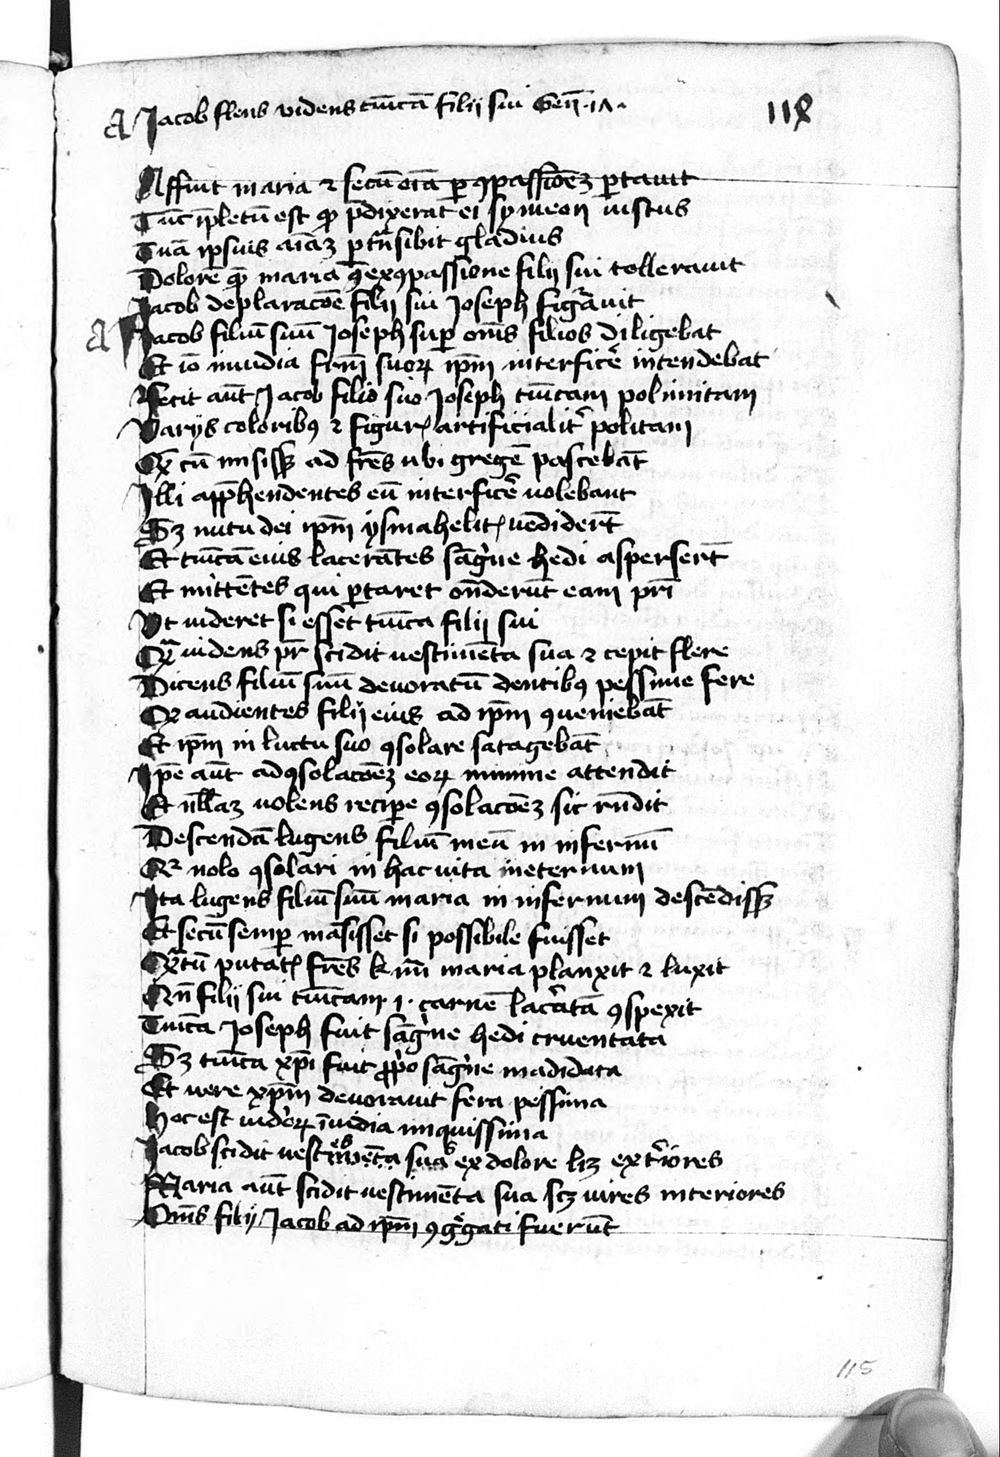 A Jacob flens videns tūicā filij sui Gen̄ ·1Λ· 118
Affuit maria ⁊ secū oīa per ꝯpassiōeꝫ portauit
Tūc īpletū est qd p̄dixerat ei symeon iustus
Tuā ip̄suis aīaꝫ ptn̄sibit gladius
Dolorē quē maria ꝯ ex ꝯpassione filij sui tollerauit
Jacob deplaracōē filij sui Joseph figurauit
A Jacob filiū suū Joseph super om̄s filios diligebat
Et iō inuidia frm̄ suoꝝ ip̄m interficē intendebat
Fecit aūt Jacob filio suo Joseph tūicam polimitam
Varijs coloribꝰ ⁊ figurꝭ artificialitˀ politam
Quē cū misissꝫ ad frēs ubi gregē pascebāt
Illi app̄hendentes eū interficē volebant
Sꝫ nutu dei ip̄m ysmahelitꝭ vēdiderūt
Et tūicā eius lacerātes sāgⁱne hedi asperserūt
Et mittētes qui portaret ondērūt eam pr̄i
Vt uideret si esset tūica filij sui
Quā uidens pr̄ scidit uestimēta sua ⁊ cepit flere
Dicens filiū suū deuoratū dentibꝰ pessime fere
Qꝫ audientes filij eius ad ip̄m ꝯueniebāt
Et ip̄m in luctu suo ꝯsolare satagebāt
Ip̄e aūt ad ꝯsolacōeꝫ eoꝝ minime attendit
Et nullaꝫ uolens recipe ꝯsolacōeꝫ sic rn̄dit
Descendā lugens filiū meū in infernū
Qꝛ nolo ꝯsolari in hac uita ineternum
Ita lugens filiū suū maria in infernum descēdissꝫ
Et secū semper māsisset si possibile fuisset
Quātū putatꝭ frēs kmī maria planxit ⁊ luxit
Qn̄ filij sui tūicam ·i· carnē lacˀatā ꝯspexit
Tūica Joseph fuit sāgⁱne hedi cruentata
Sꝫ tūica xp̄i fuit prop̄o sāgⁱne madidata
Et uere xp̄m deuorauit fera pessima
Hoc est iudeoꝝ īuidia iniquissima
Jacob scidit uestes suas ex dolore lꝫ extˀiores
Maria aūt scidit uestimēta sua scꝫ uires interiores
Om̄s filij Jacob ad ip̄m ꝯgˀgati fuerūt
115